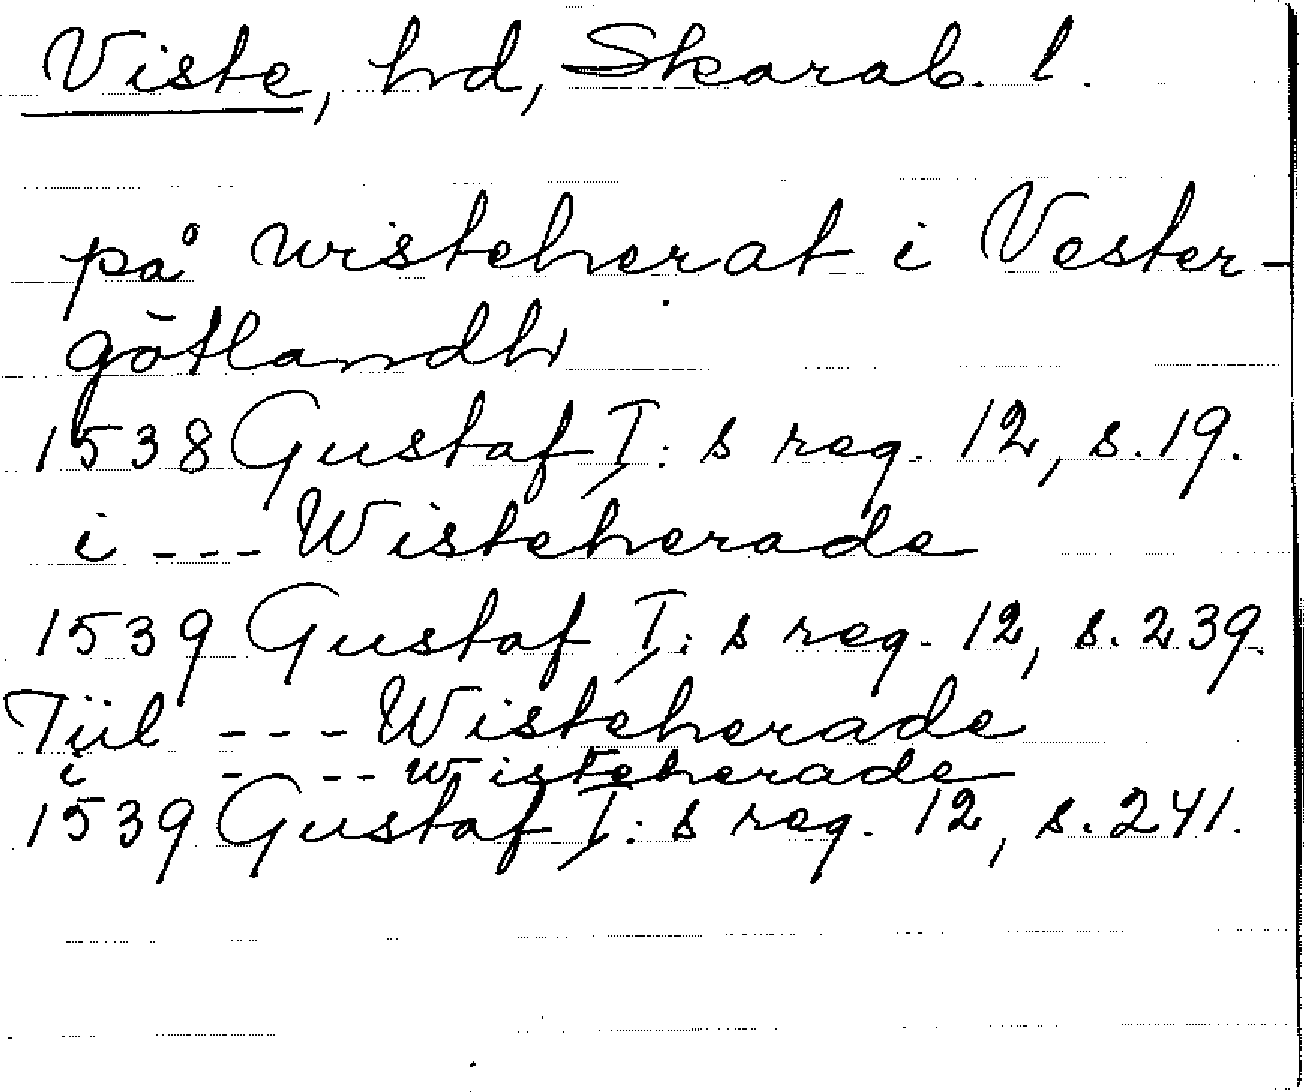 Viste, hd, Skarab. l.
på wisteherat i Vester-
götlandh
1538 Gustaf I: s reg. 12, s. 19.
i --- Wisteherade
1539 Gustaf I: s reg. 12, s. 239.
Tiil --- Wisteherade
i - --- wisteherade
1539 Gustaf I: s reg. 12, s. 241.